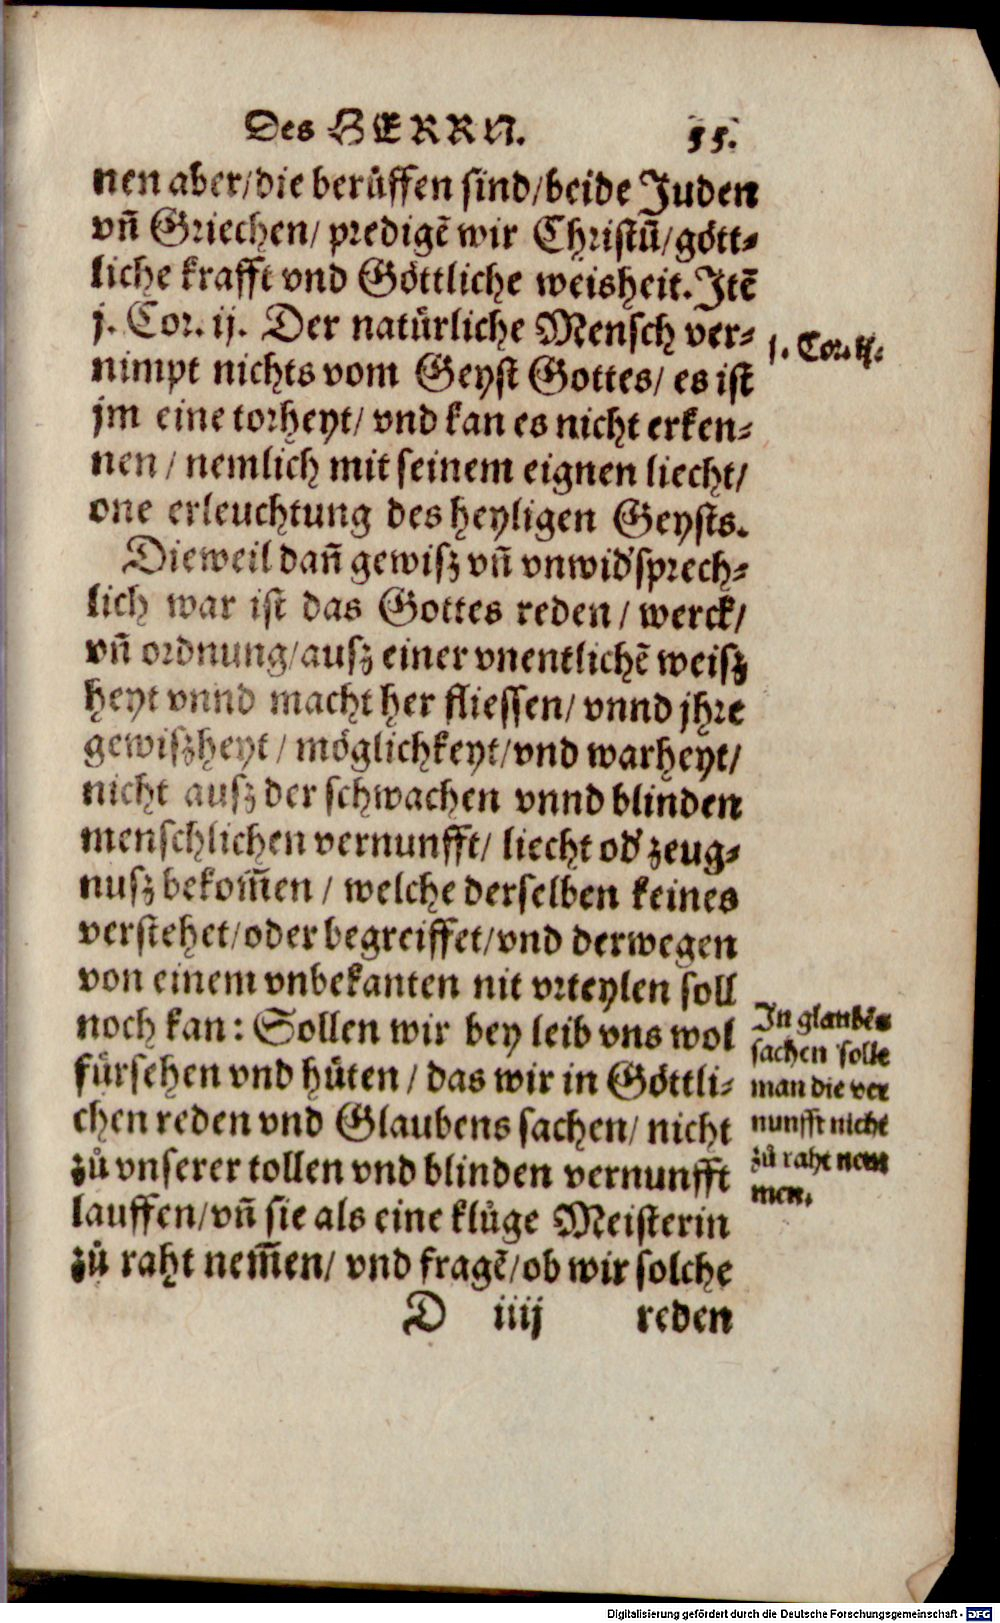 Des HERRN. 55.
nen aber/die beruͤffen sind/beide Juden
vñ Griechen/ predigẽ wir Christũ/goͤtt⸗
liche krafft vnd Goͤttliche weisheit. Jtẽ
j. Cor. ij. Der natuͤrliche Mensch ver⸗
j. Cor. ij.
nimpt nichts vom Geyst Gottes/ es ist
jm eine torheyt/ vnd kan es nicht erken⸗
nen / nemlich mit seinem eignen liecht/
one erleuchtung des heyligen Geysts.
Dieweil dañ gewisz vñ vnwid'sprech⸗
lich war ist das Gottes reden / werck/
vñ ordnung/ausz einer vnentlichẽ weisz
heyt vnnd macht her fliessen/ vnnd jhre
gewiszheyt / moͤglichkeyt/vnd warheyt/
nicht ausz der schwachen vnnd blinden
menschlichen vernunfft/ liecht od' zeug⸗
nusz bekom̃en / welche derselben keines
verstehet/oder begreiffet/vnd derwegen
von einem vnbekanten nit vrteylen soll
noch kan: Sollen wir bey leib vns wol
fuͤrsehen vnd huͤten / das wir in Goͤttli⸗
chen reden vnd Glaubens sachen/ nicht
zuͦ vnserer tollen vnd blinden vernunfft
lauffen/vñ sie als eine kluͦge Meisterin
zuͦ raht nem̃en/ vnd fragẽ/ob wir solche
Jn glaubẽs
sachen solle
man die ver
nunfft nicht
zuͦ raht nem
men.
D iiij reden
Digitalisierung gefördert durch die Deutsche Forschungsgemeinschaft - DFG